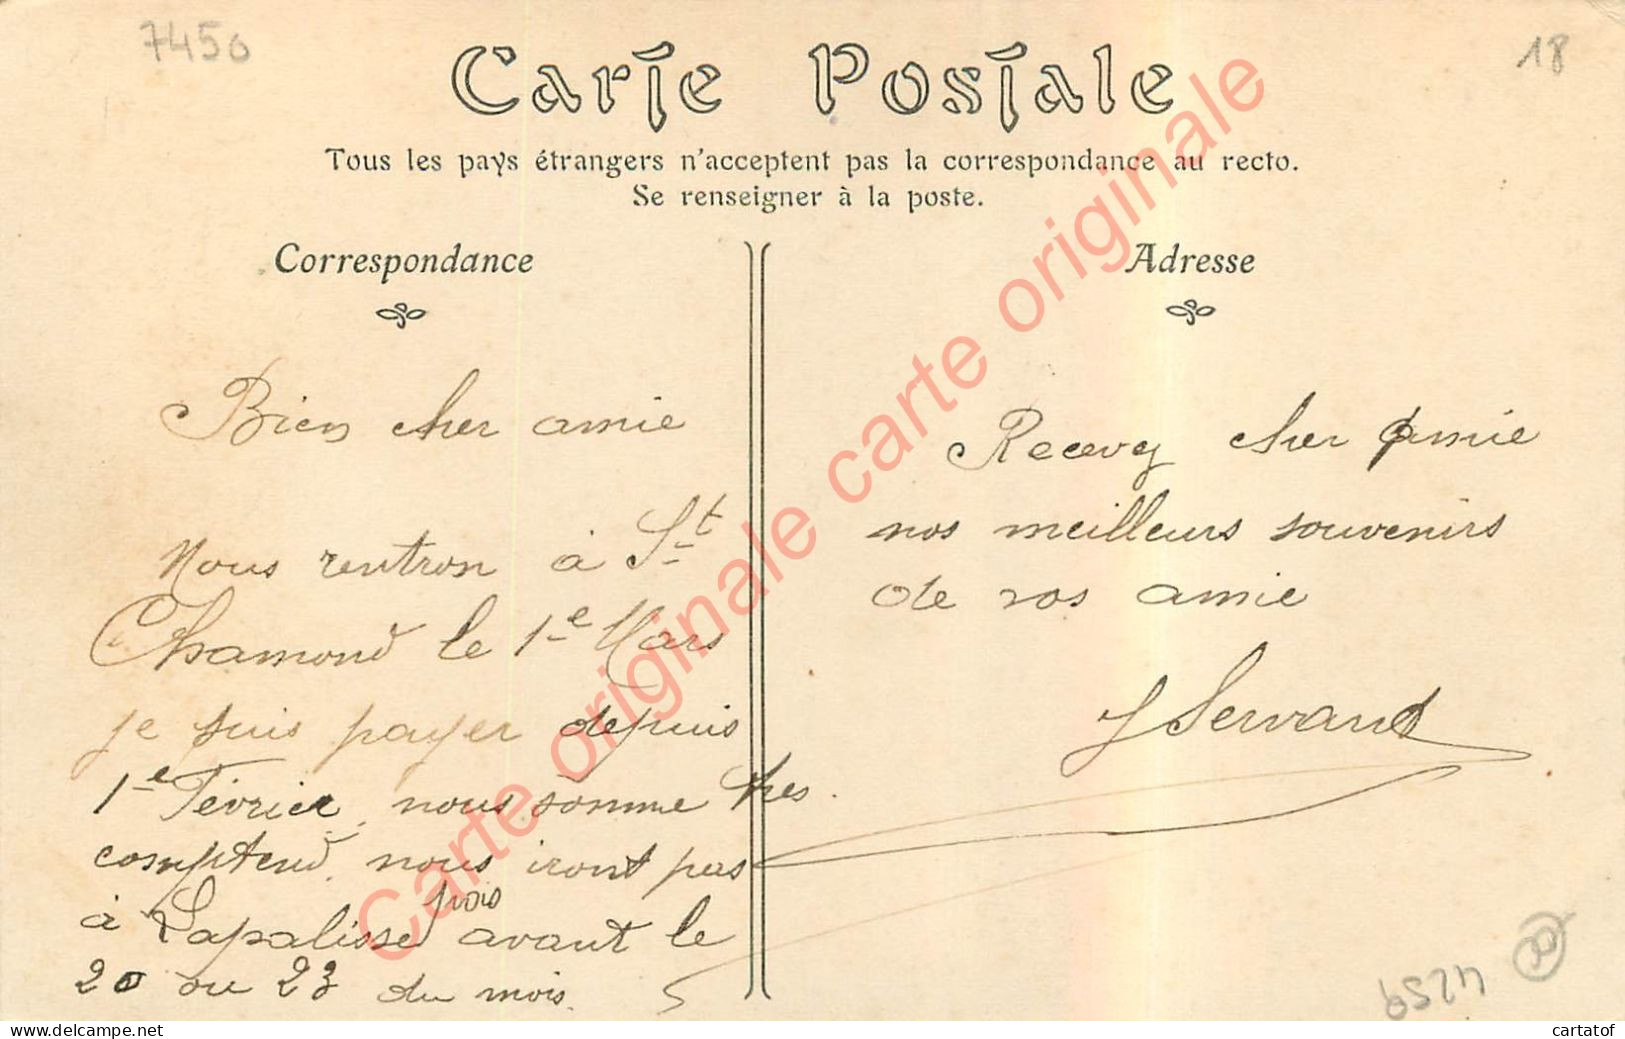 7450
18
Carte Postale
Tous les pays étrangers n'acceptent pas la correspondance au recto.
Se renseigner à la poste.
Correspondance
Bien cher amie
Nous rentron à St
Chamond le 1e Mars
je suis payer depuis
1e Février, nous somme tres
comptend. nous iront pas
à Lapalisse pois avant le
20 ou 23 du mois.
Adresse
Recevez cher amie
nos meilleurs souvenirs
de vos amie
J Servand
Carte originale carte originale
cartatof